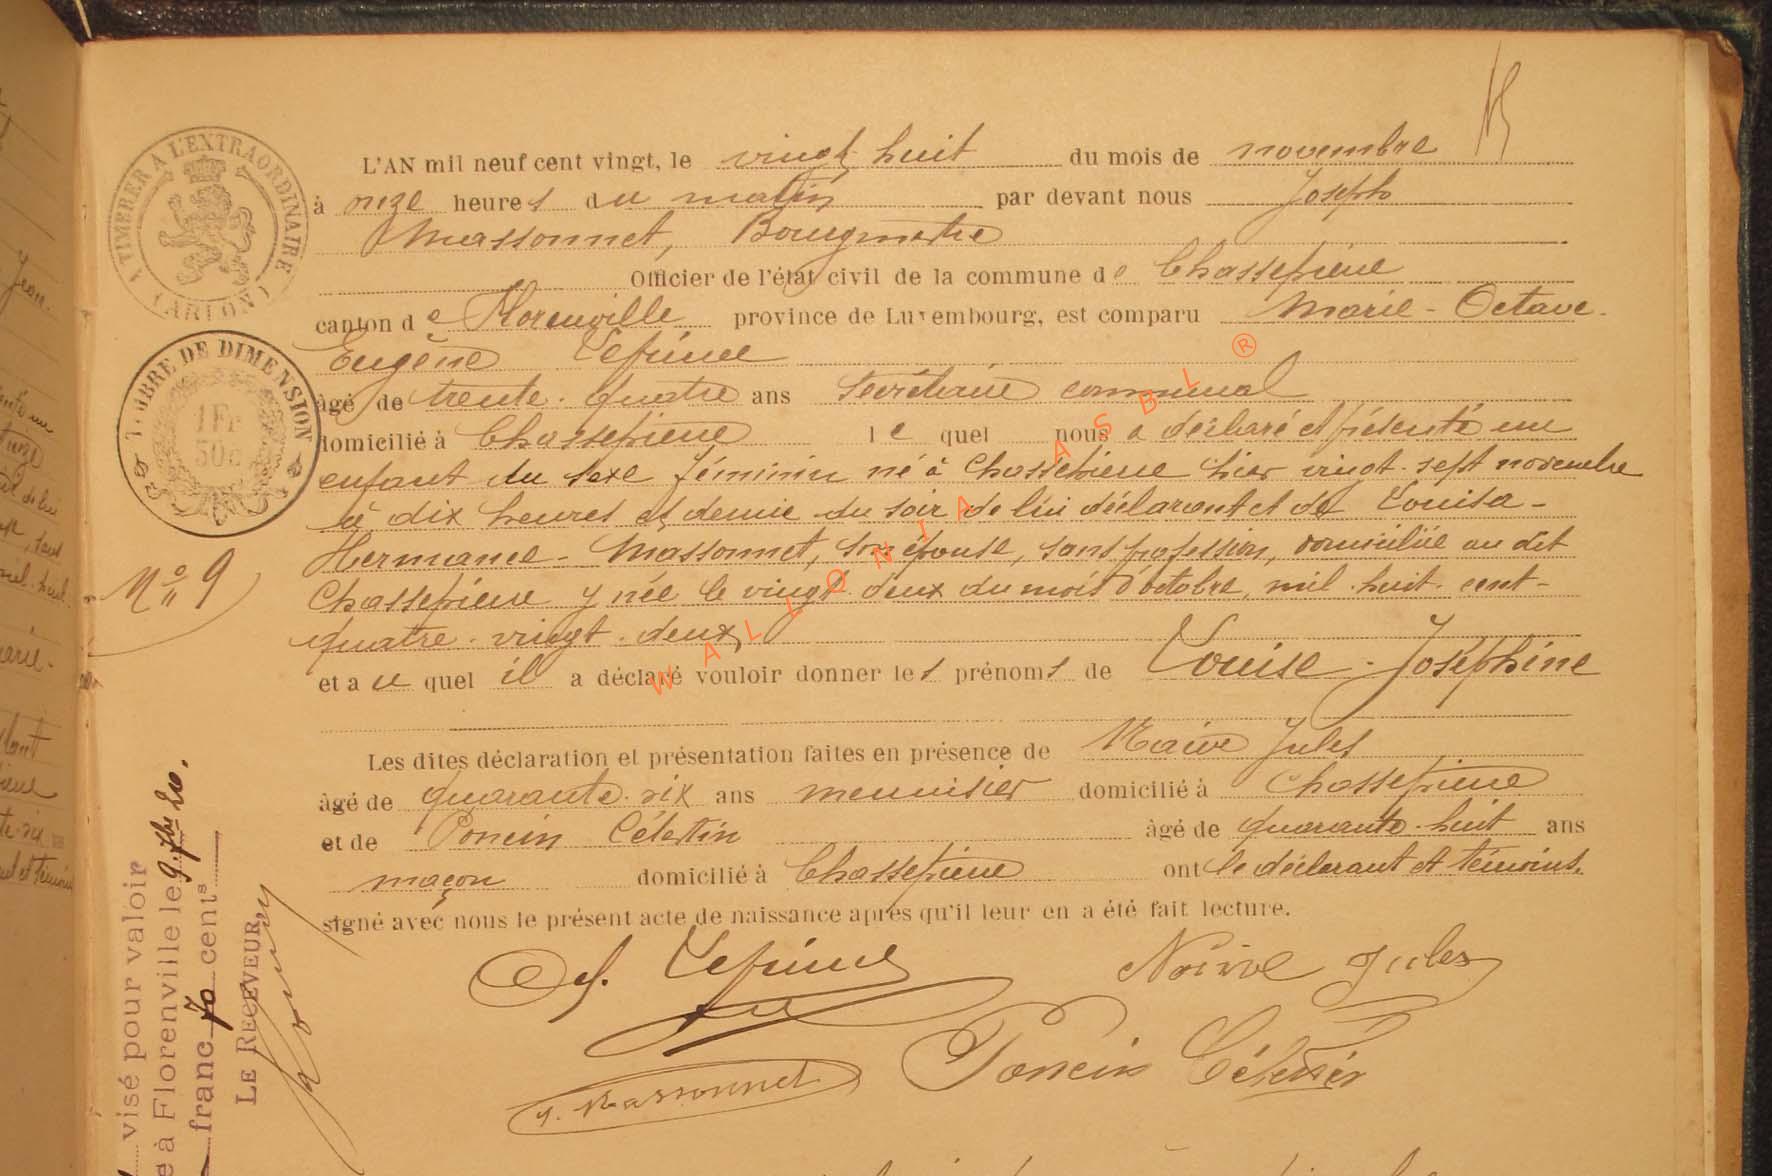 A TIMBRER A L'EXTRAORDINAIRE
( ARLON )
TIMBRE DE DIMENSION
1 FR
50c
Nº 9
L'AN mil neuf cent vingt, le vingt huit du mois de novembre
à onze heures du matin par devant nous Joseph
Massonnet, Bourgmestre
Officier de l'état civil de la commune de Chassepierre
canton de Florenville province de Luxembourg, est comparu Marie - Octave
Eugène Lepiece
âgé de trente-quatre ans Secrétaire communal
domicilié à Chassepierre lequel nous a déclaré et présenté un
enfant du sexe féminin né à Chassepierre hier vingt-sept novembre
à dix heures et demie du soir de lui déclarant et de Louisa -
Hermance - Massonnet, son épouse, sans profession, domiciliée au dit
Chassepierre y née le vingt deux du mois d'octobre, mil-huit-cent-
quatre-vingt-deux,
et au quel il a déclaré vouloir donner les prénoms de Louise - Joséphine
Les dites déclaration et présentation faites en présence de Jules
âgé de quarante-six ans menuisier domicilié à Chassepierre
et de Poncin Célestin âgé de quarante-huit ans
maçon domicilié à Chassepierre ont le déclarant et témoins
signé avec nous le présent acte de naissance après qu'il leur en a été fait lecture.
Jules
Poncin Célestin
J. Massonnet
visé pour valoir
à Florenville le 9. 7bre 20.
franc 70 cents
LE RECEVEUR,
WALLONIA ASBL ®